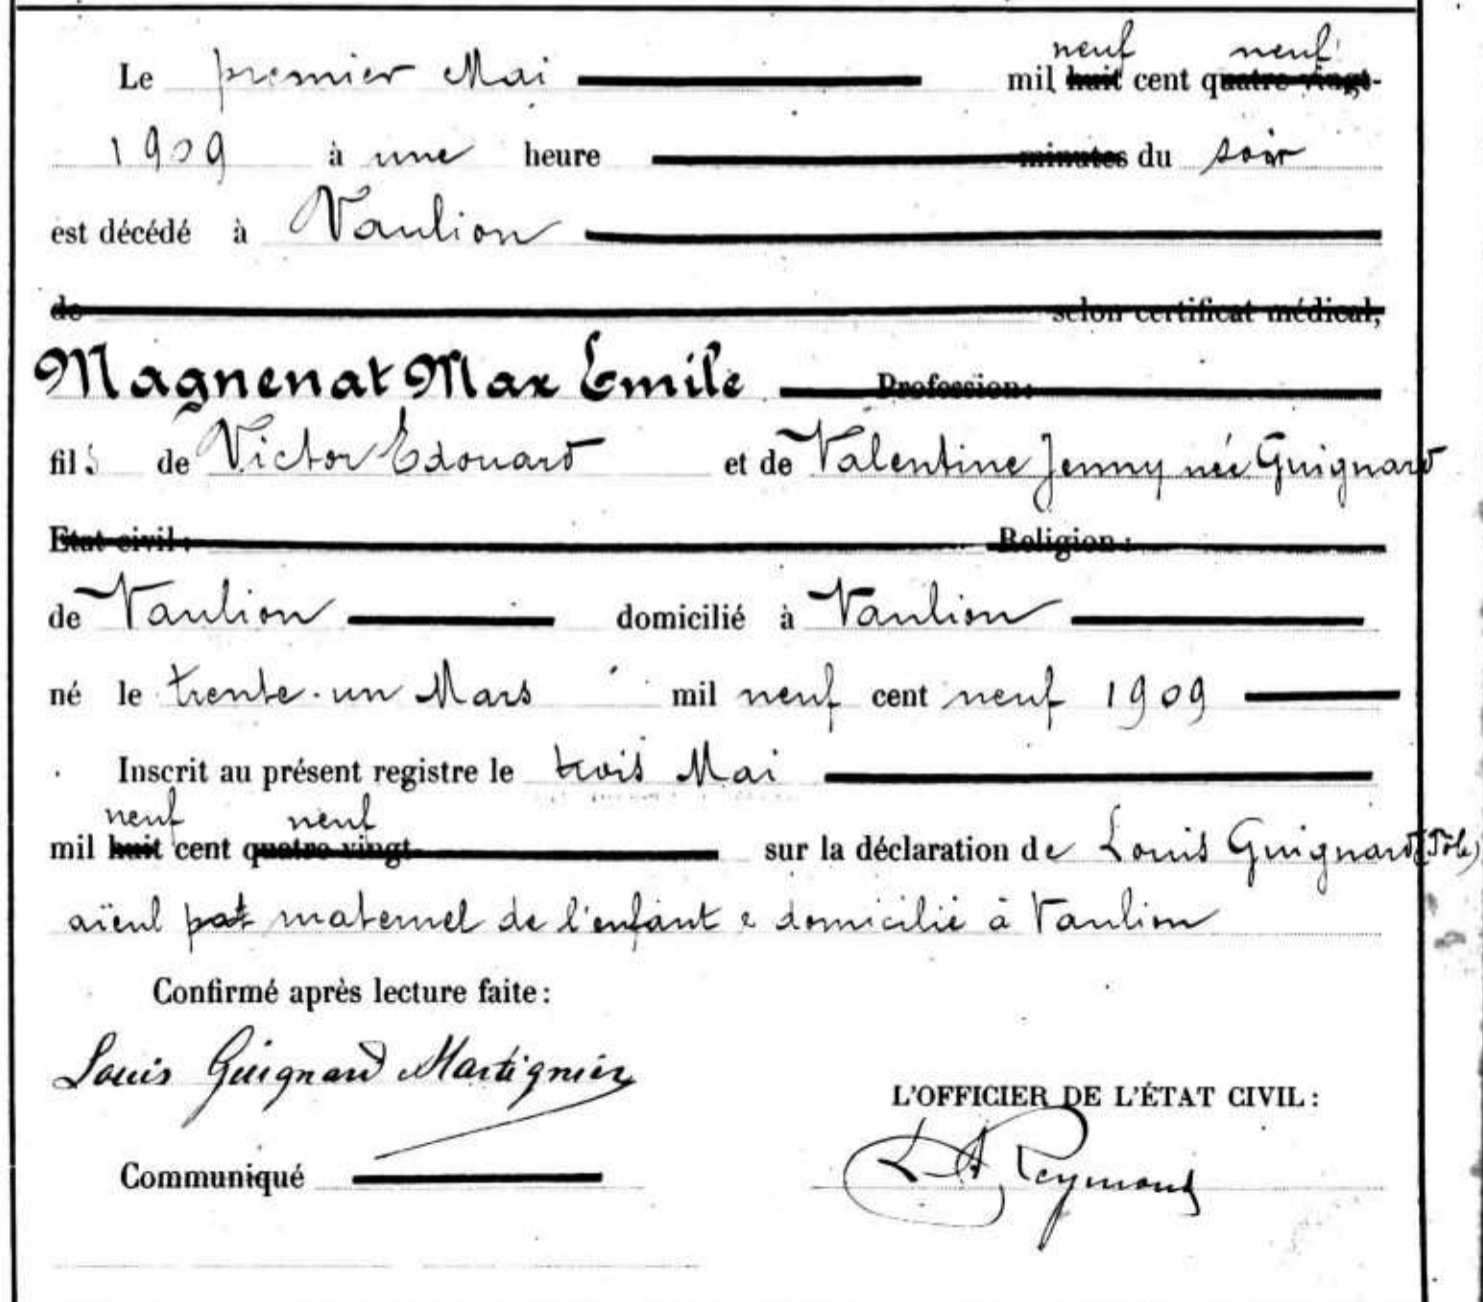 Le premier Mai mil neuf huit cent neuf quatre-vingt-
1909 à une heure minutes du soir
est décédé à Vaulion
de selon certificat médical,
Magnenat Max Emile Profession:
fils de Victor Edouard et de Valentine Jenny née Guignard
Etat civil: Religion:
de Vaulion domicilié à Vaulion
né le trente-un Mars mil neuf cent neuf 1909
Inscrit au présent registre le trois Mai
neuf neuf
mil huit cent quatre-vingt- sur la déclaration de Louis Guignard
aïeul pat maternel de l'enfant domicilié à Vaulion
Confirmé après lecture faite:
Louis Guignard Martignier
L'OFFICIER DE L'ÉTAT CIVIL:
Communiqué
Reymond